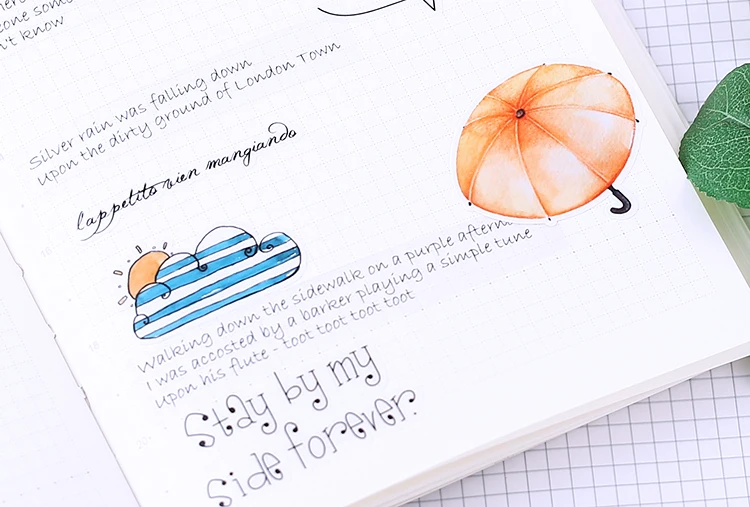 one some
n't know
Silver rain was falling down
upon the dirty ground of London Town
l'appetito vien mangiando
Walking down the sidewalk on a purple aftern
I was accosted by a barker playing a simple tune
upon his flute - toot toot toot toot
Stay by my
side forever.